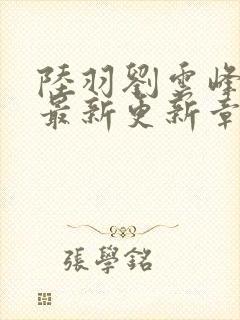 陸羽劉雲峰
最新更新章
張學銘